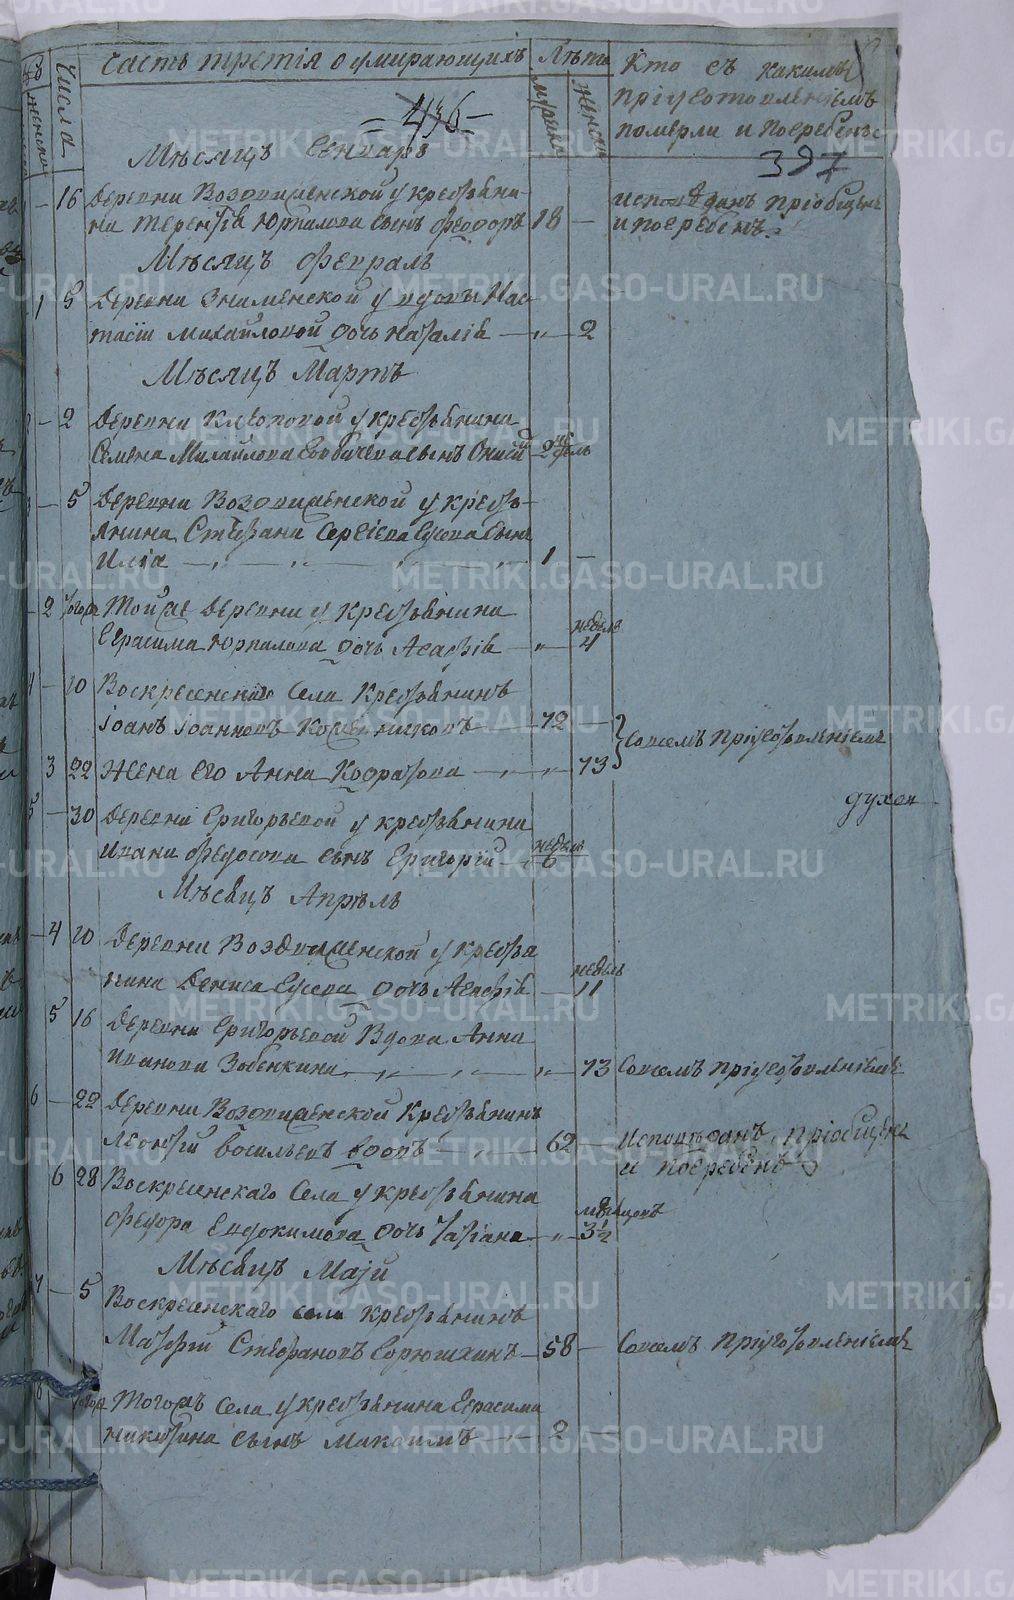 Числа
Часть третія о умирающихъ
Лѣта
мужска
женска
Кто съ какимъ
пріуготовленіемъ
померли и погребенъ
436
397
Мѣсяцъ Генваръ
16 Деревни Воздвиженской у крестьяни-
на Терентія Юрпалова сынъ Феодоръ 18 —
исповѣданъ пріобщенъ
и погребенъ.
Мѣсяцъ Февраль
1 5 Деревни Знаменской у вдовы Нас-
тасіи Михайловой дочь Наталія — „ — 2
Мѣсяцъ Мартъ
2 Деревни Клѣповой у крестьянина
Семена Михайлова сынъ 2 недѣль
5 Деревни Воздвиженской у кресть-
янина Стефана Сергіева Гусева сынъ
Илія — „ — „ — 1 —
2 Той же деревни у крестьянина
Герасима Юрпалова дочь Агафія — „ — недель 4
4 — 10 Воскресенскаго села крестьянинъ
Іоанъ Іоанновъ — 72 —
Совсемъ пріуготовленіемъ
3 22 Жена его Анна Кодратова — „ „ — 73
духов
5 — 30 Деревни Григорьевой у крестьянина
Ивана Федосова сынъ Григорій — недель 6
Мѣсяцъ Апрѣль
4 10 Деревни Воздвиженской у крестья
нина Дениса Гусева дочь Агафія — недель 11
5 16 Деревни Григорьевой вдова Анна
Иванова Зобенкина — „ — „ — 73 Совсемъ пріуготовленіемъ
6 — 22 Деревни Воздвиженской крестьянинъ
Леонтій Васильевъ — 62 — Исповѣданъ пріобщенъ
и погребенъ
6 28 Воскресенскаго села у крестьянина
Федора Евдокимова дочь Татіана — „ — мѣсяцовъ 3½
Мѣсяцъ Маій
7 — 5 Воскресенскаго села крестьянинъ
Матфій Стефановъ Горюшкинъ — 58 — Совсемъ пріуготовленіемъ
8 Тогожъ села у крестьянина Герасима
Никитина сынъ Максимъ — 2 —
METRIKI.GASO-URAL.RU